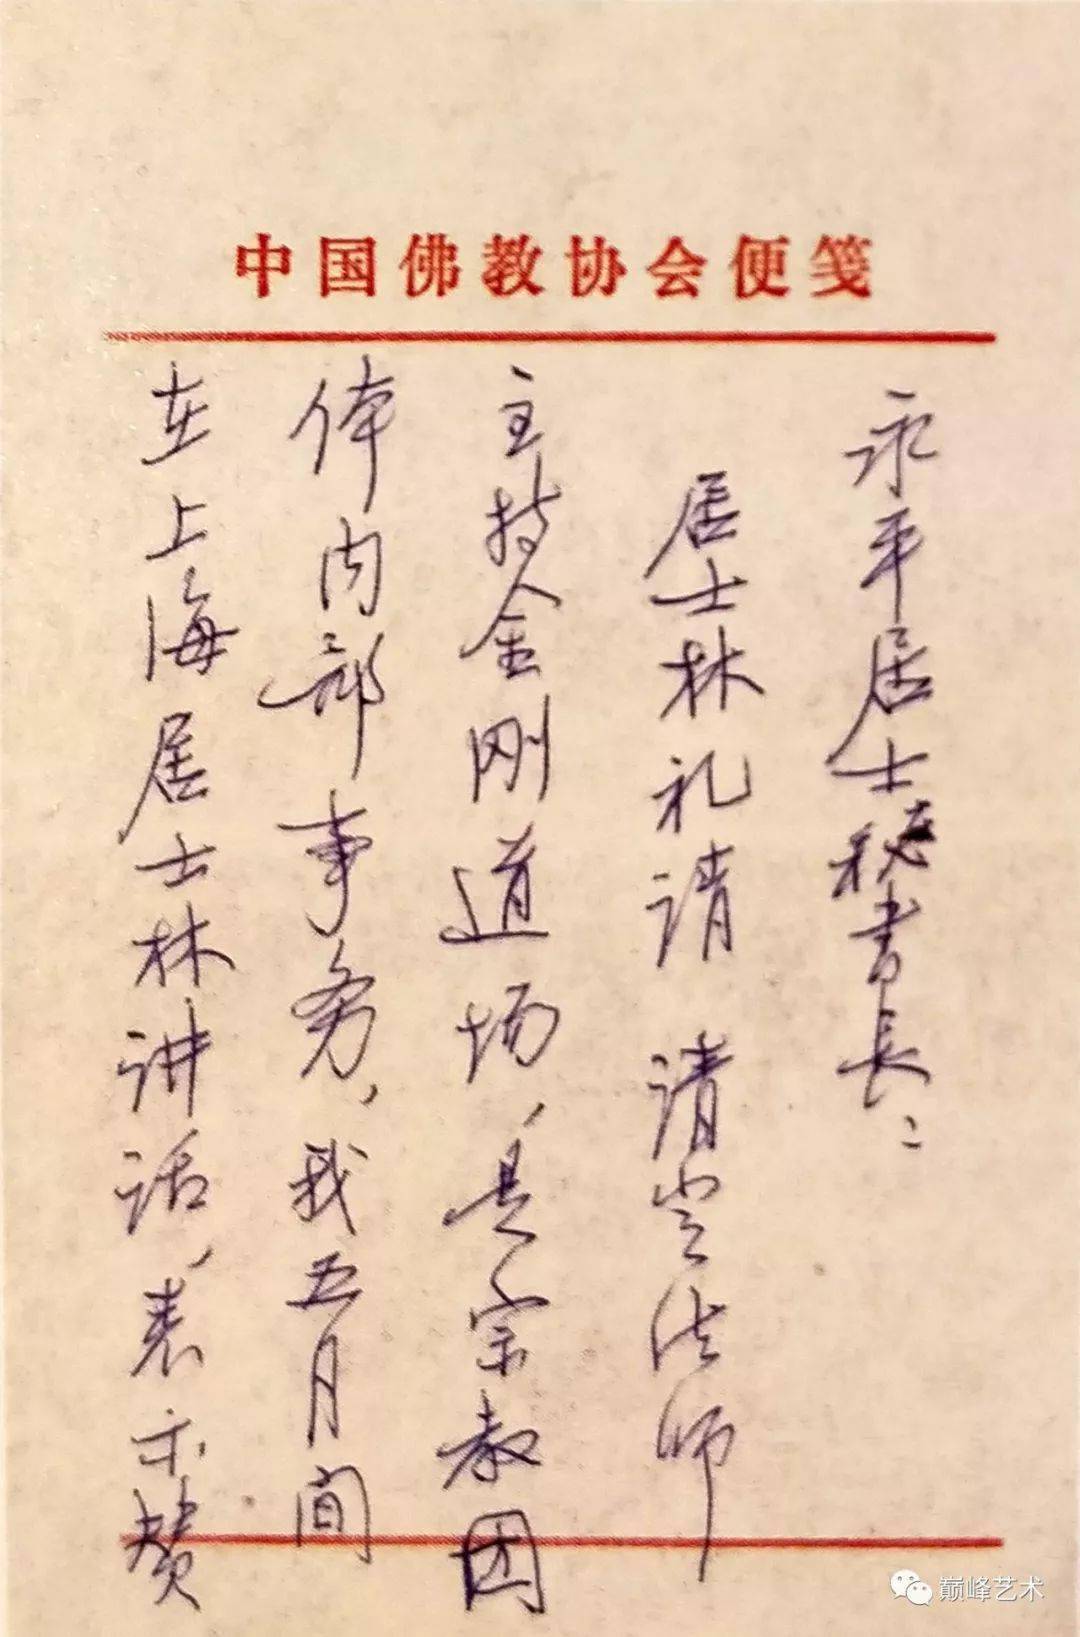 中国佛教协会便笺
永平居士秘书长：
居士林礼请 清定法师
主持金刚道场，是宗教团
体内部事务，我五月间
在上海居士林讲话，表示赞
巅峰艺术